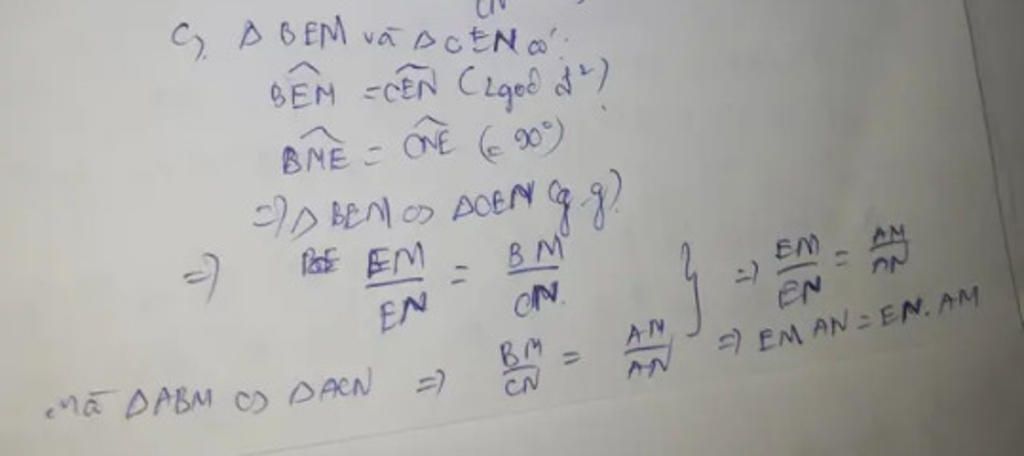 CN
c, Δ BEM và Δ CEN có:
BEM = CEN (2 góc đ²)
BME = CNE (= 90°)
=> Δ BEM ∽ Δ CEN (g.g)
=> EM/EN = BM/CN } => EM/EN = AM/AN
mà ΔABM ∽ ΔACN => BM/CN = AM/AN => EM AN = EN. AM